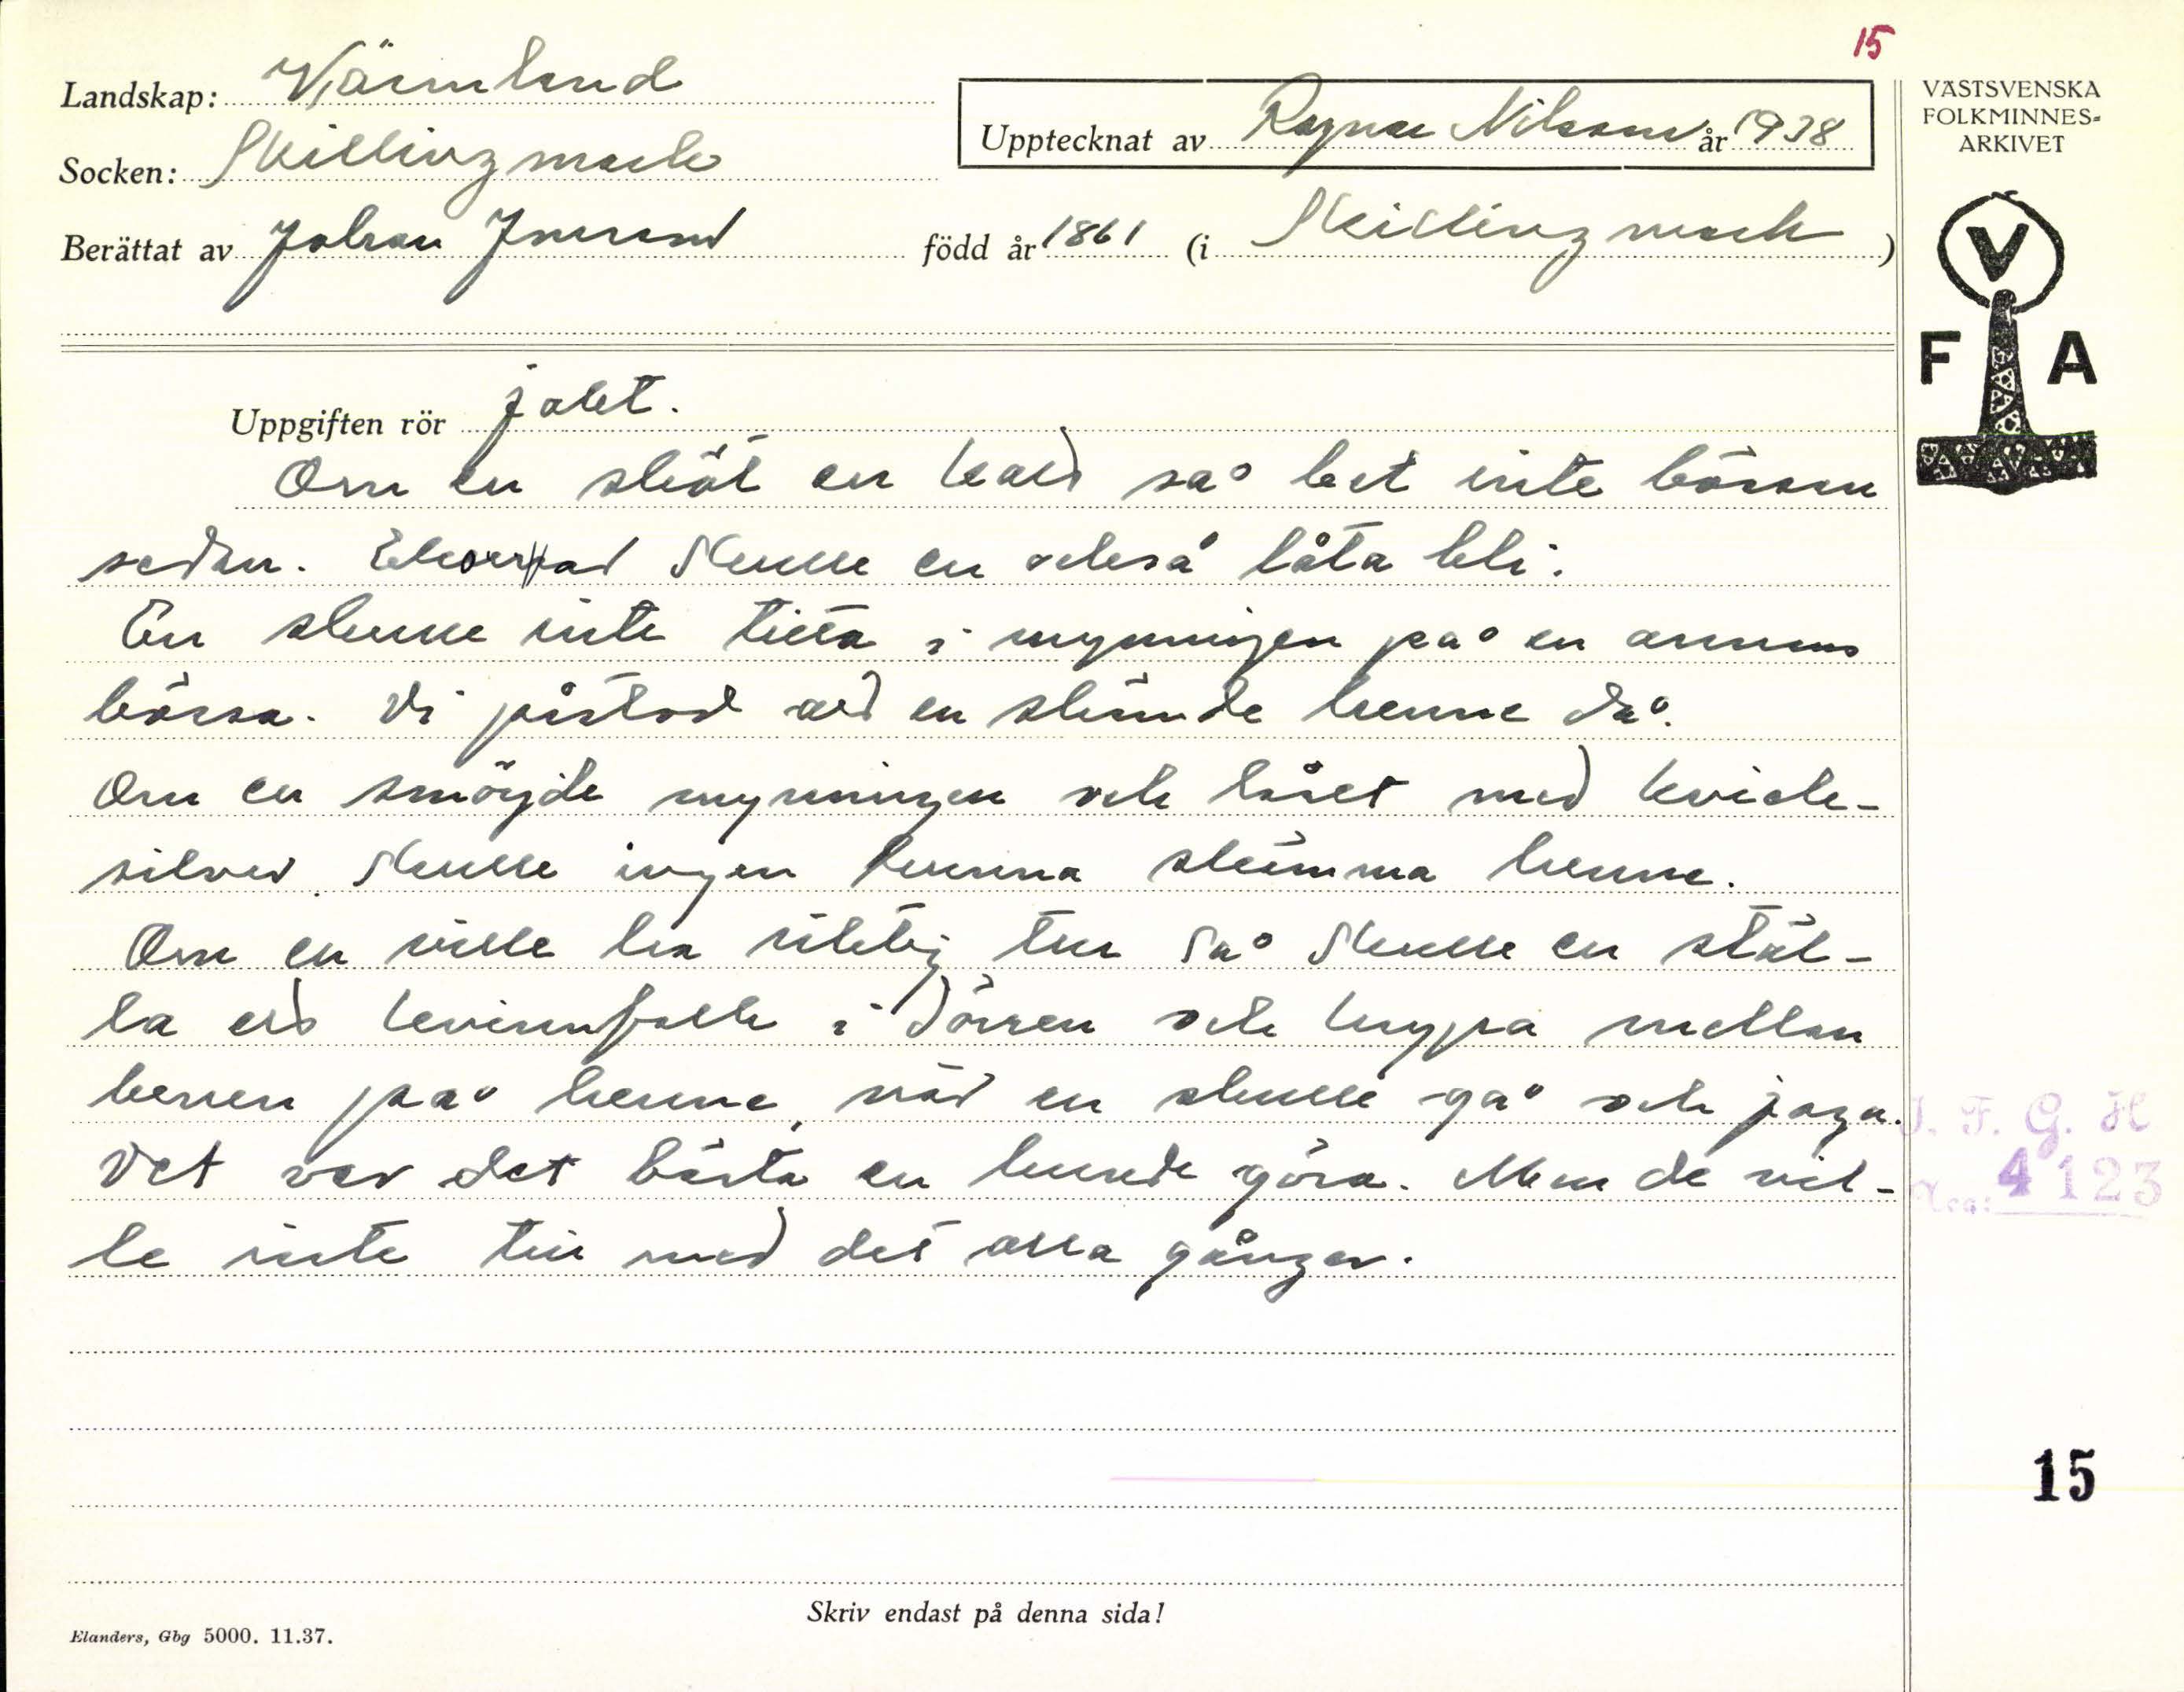 15
Landskap: Värmland
Socken: Skillingmark
Upptecknat av Ragnar Nilsson år 1938
Berättat av Johan Jonsson född år 1861 (i Skillingmark)
VÄSTSVENSKA
FOLKMINNES-
ARKIVET
V
F A
Uppgiften rör jakt.
Om en sköt en katt så bet inte bössan
sedan. Ekorrar skulle en också låta bli.
En skulle inte titta i mynningen på en annans
bössa. Di påstod att en skämde henne då.
Om en smörjde mynningen och låset med kvick-
silver skulle ingen kunna skämma henne.
Om en ville ha riktig tur så skulle en stäl-
la ett kvinnfolk i dörren och krypa mellan
benen på henne, när en skulle gå och jaga.
Det var det bästa en kunde göra. Men de vil-
le inte till med det alla gånger.
I. F. G. H
Acc: 4123
15
Skriv endast på denna sida!
Elanders, Gbg 5000. 11.37.